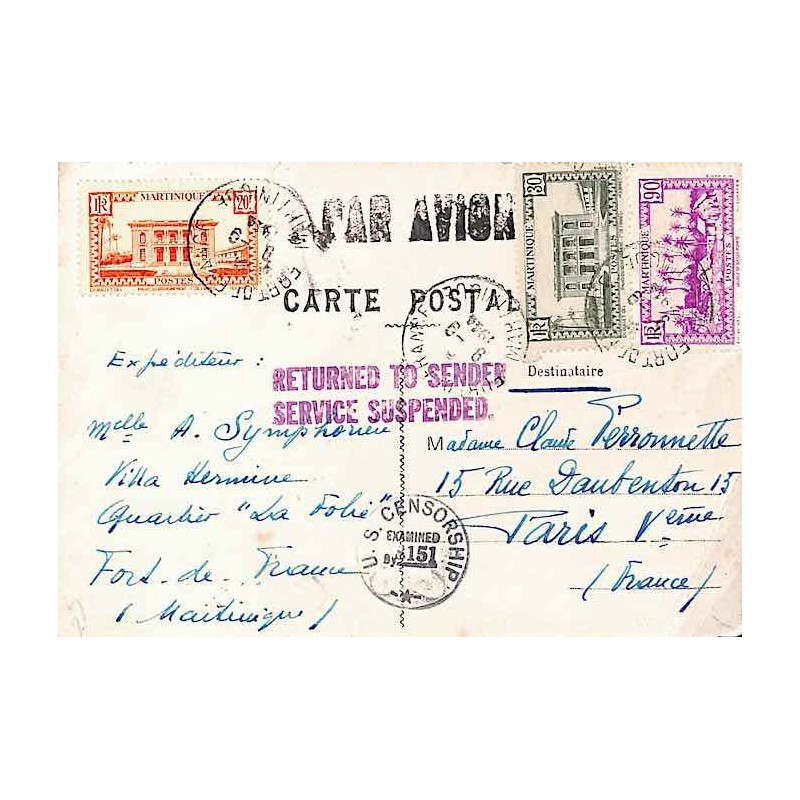 MARTINIQUE
RF
20F
POSTES
MARTINIQUE
FORT DE FRANCE
PAR AVION
30c
MARTINIQUE
RF
POSTES
90c
MARTINIQUE
RF
POSTES
CARTE POSTALE
Expéditeur :
RETURNED TO SENDER
SERVICE SUSPENDED.
Destinataire
Melle A. Symphorien
Villa Hermine
Quartier "La Folie"
Fort-de-France
(Martinique)
Madame Claude Perronnette
15 Rue Daubenton 15
Paris Veme
(France)
U.S. CENSORSHIP
EXAMINED
By 151